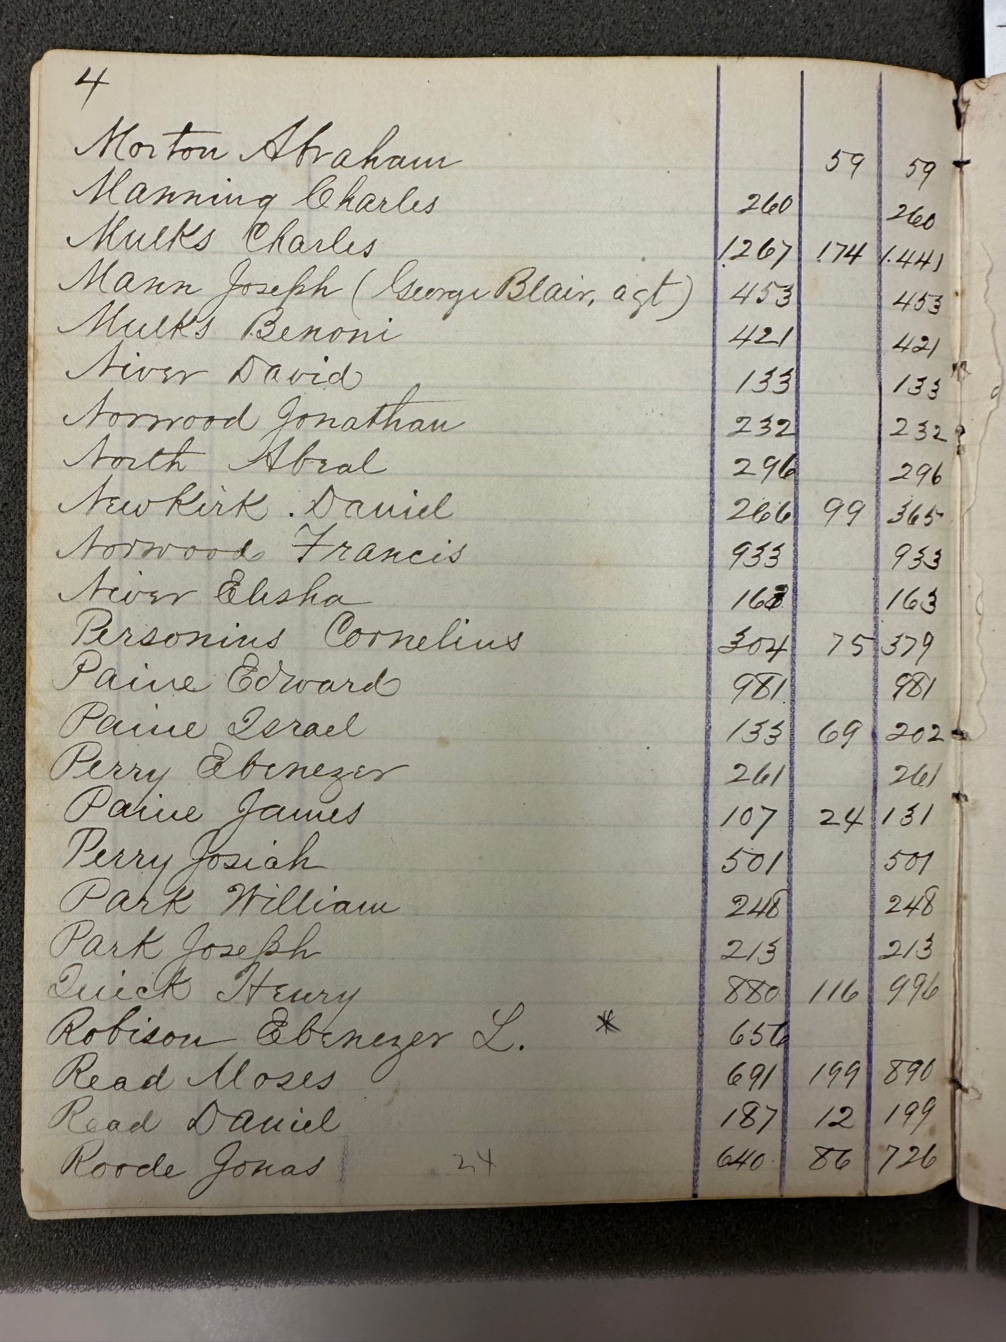 4
Morton Abraham 59 59
Manning Charles 260 260
Mulks Charles 1.267 174 1.441
Mann Joseph (George Blair, agt) 453 453
Mulks Benoni 421 421
Niver David 133 133
Norwood Jonathan 232 232
North Abeal 296 296
NewKirk. Daniel 266 99 365
Norwood Francis 933 933
Niver Elisha 163 163
Personius Cornelius 304 75 379
Paine Edward 981 981
Paine Israel 133 69 202
Perry Ebenezer 261 261
Paine James 107 24 131
Perry Josiah 501 501
Park William 248 248
Park Joseph 213 213
Quick Henry 880 116 996
Robison Ebenezer L. * 656
Read Moses 691 199 890
Read Daniel 187 12 199
Roode Jonas 24 640 86 726